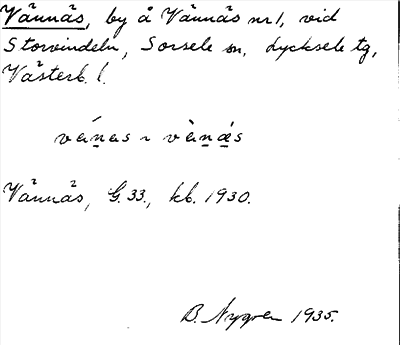 Vännäs, by å Vännäs nr 1, vid
Storvindeln, Sorsele sn, Lycksele tg,
Västerb. l.
vȧ́nas ~ vȧ̀nǽs
Vännäs, G. 33., kb. 1930.
B. Nygren 1935.